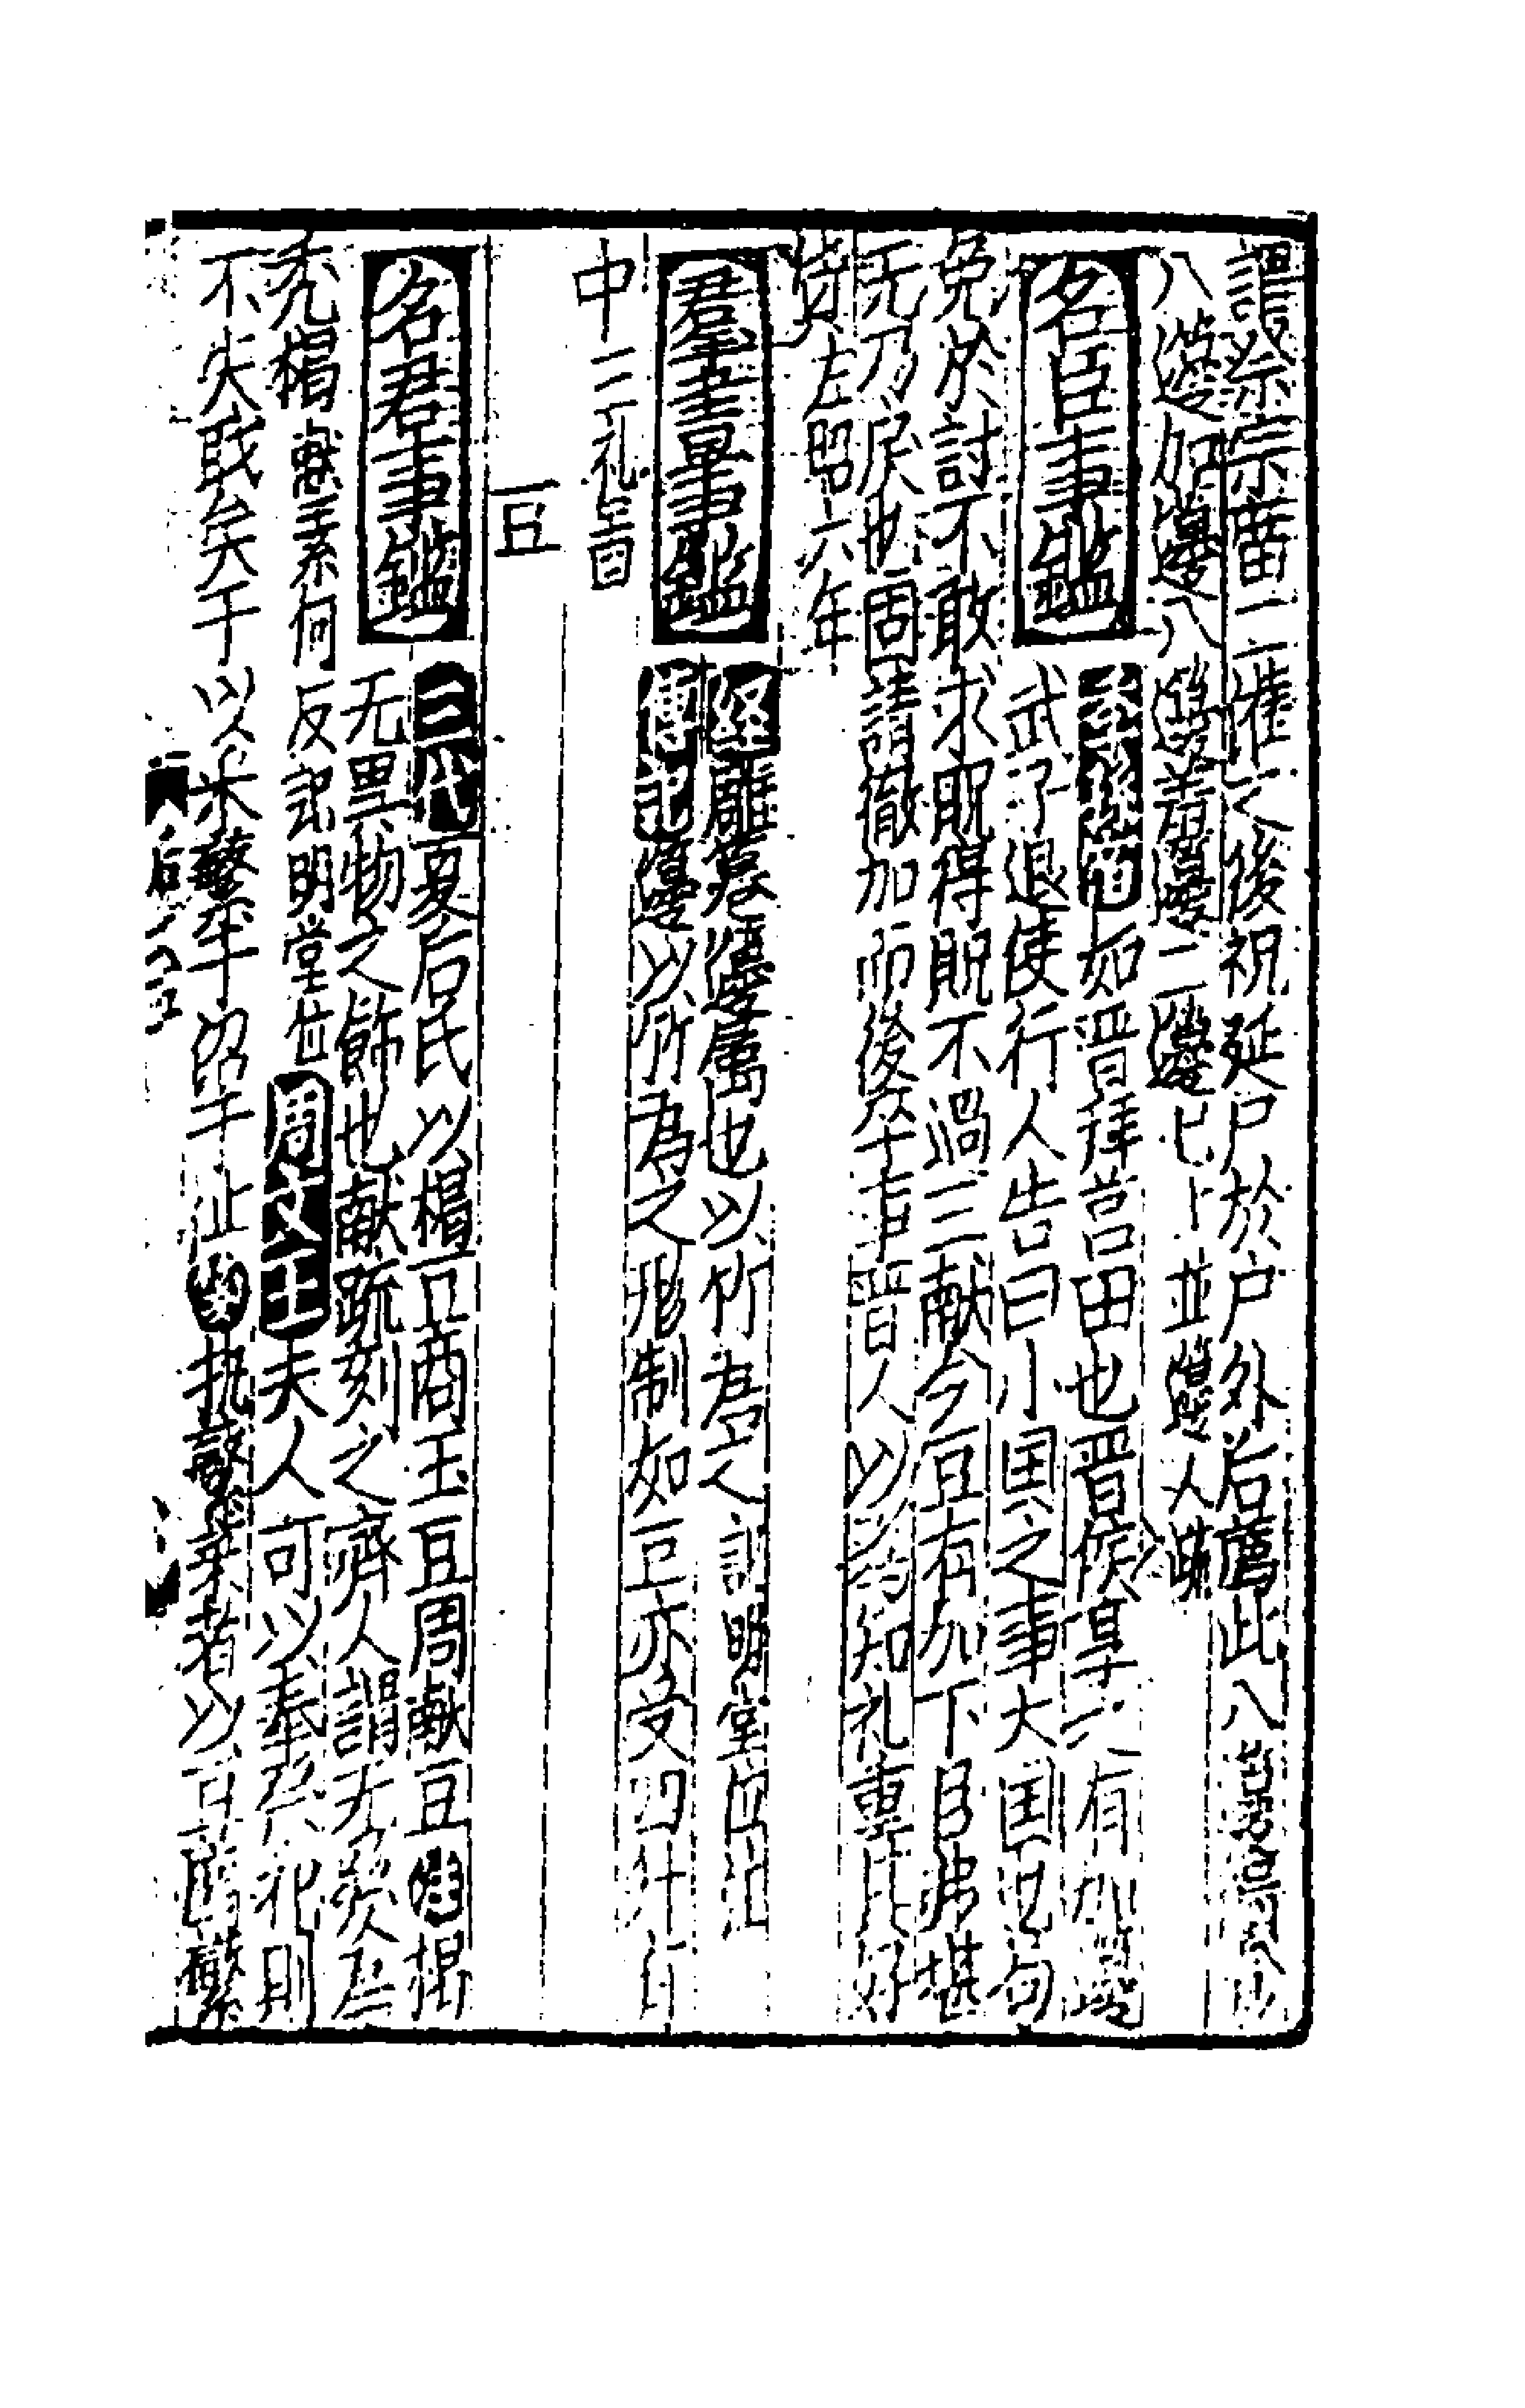 謂祭宗庙二灌之後祝延尸於户外后薦此八
八籩加籩八籩羞籩二籩已上並籩人職
名臣事鑑
如晋拜莒田也晋侯享之有加籩
武子退使行人告曰小国之事大国也苟
免於討不敢求貺得貺不過三献今豆有加下臣弗堪
无乃戾也固請徹加而後卒事晋人以為知礼重其好
貨左昭六年
羣書事鑑
經雕篹籩属也以竹為之 記明堂位注
傳記籩以竹為之形制如豆亦受四升
中二礼圖
豆
名君事鑑
三代夏后氏以楬豆商玉豆周献豆注楬
无異物之飾也献疏刻之齊人謂无髮為
禿楬 献素何反記明堂位 周文王夫人可以奉祭祀則
不失職矣于以采蘩于沼于沚 执蘩菜者以豆薦蘩